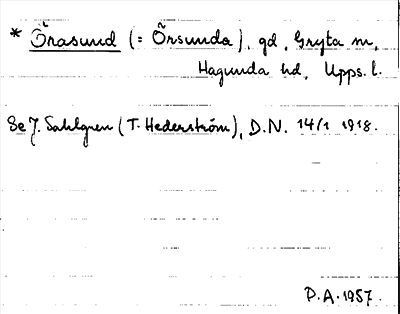 * Õrasund (= Õrsunda), gd, Gryta sn,
Hagunda hd, Upps. l.
Se J. Sahlgren (T. Hederström), D.N. 14/1 1918.
P.A. 1957.